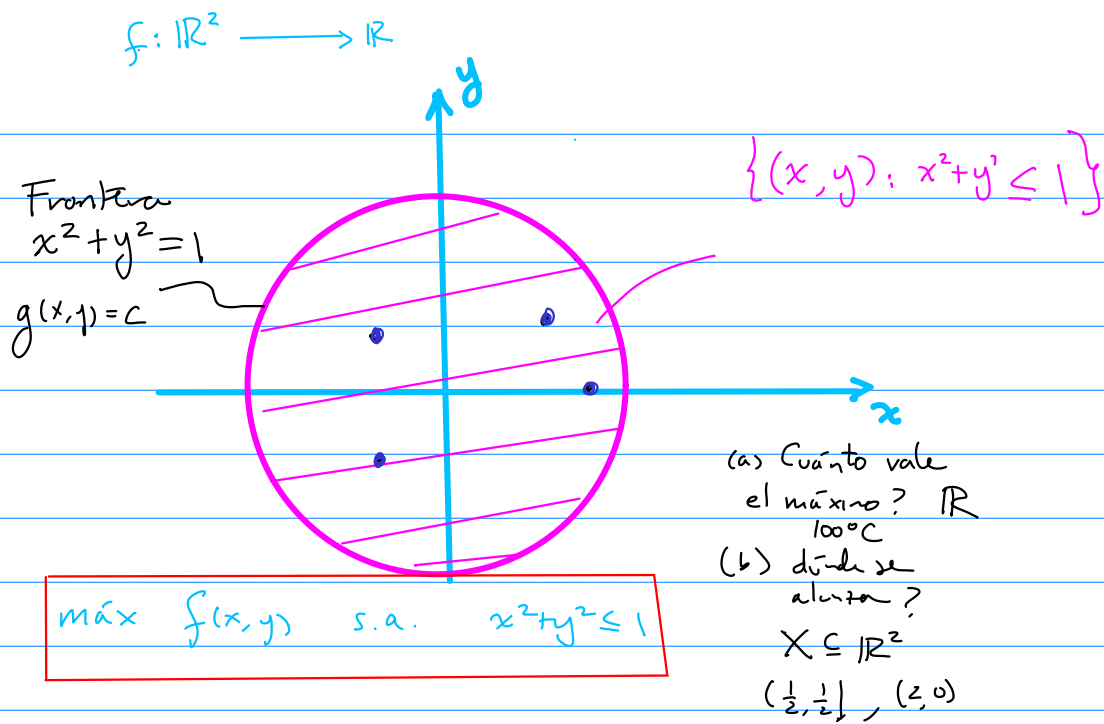 f: ℝ² ⟶ ℝ
y
{(x,y): x²+y² ≤ 1}
Frontera
x²+y²=1
g(x,y)=c
x
(a) Cuánto vale
el máximo? ℝ
100°C
(b) dónde se
alcanza?
X ⊆ ℝ²
(½,½), (2,0)
máx f(x,y) s.a. x²+y² ≤ 1